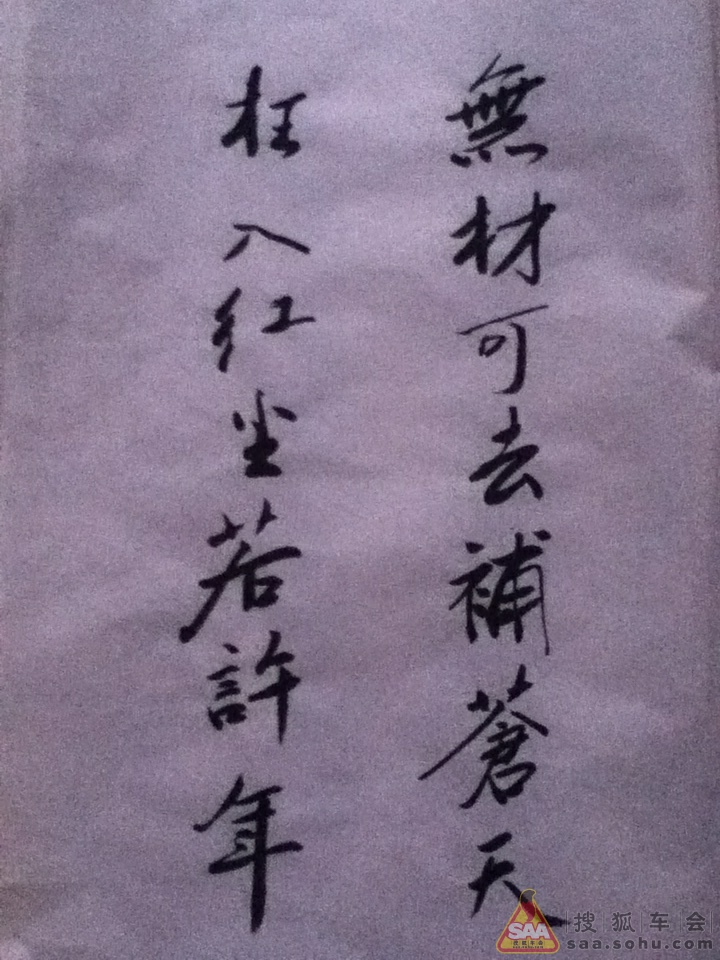 無材可去補蒼天
枉入红尘若許年
SAA
搜狐车会
搜狐车会
saa.sohu.com